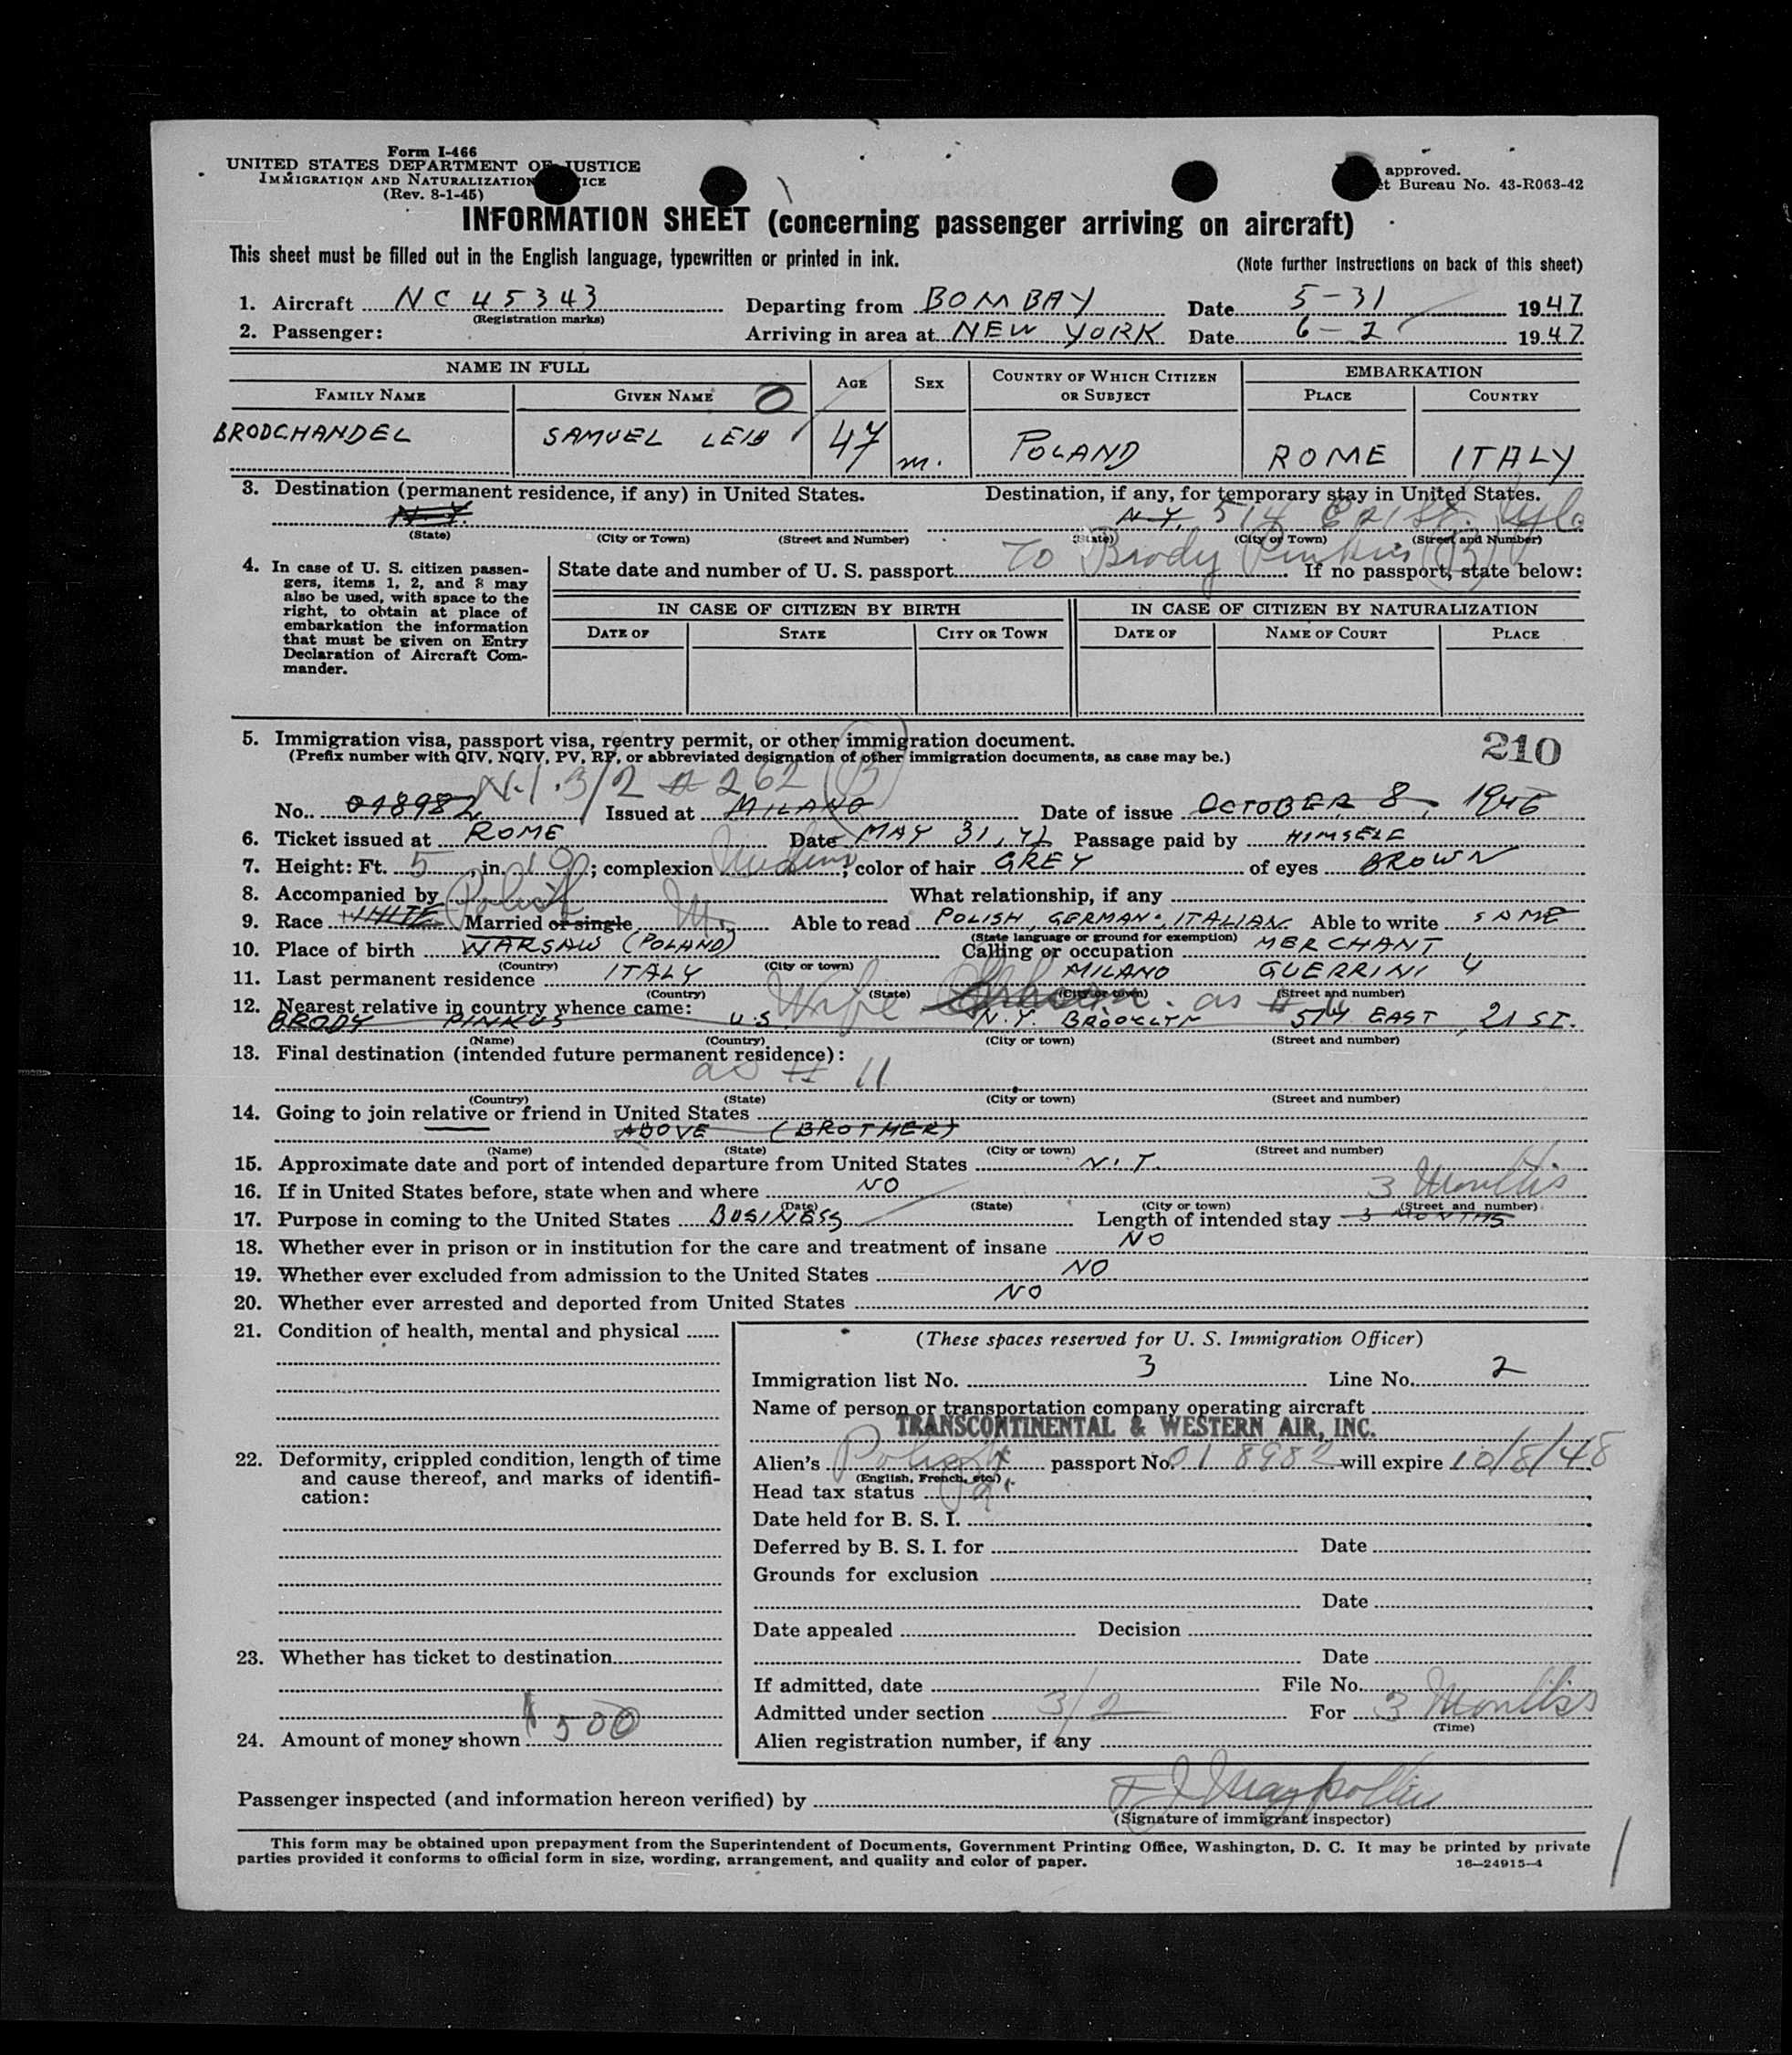 Form I-466
UNITED STATES DEPARTMENT OF JUSTICE
IMMIGRATION AND NATURALIZATION
(Rev. 8-1-45)
approved.
Bureau No. 43-R063-42
INFORMATION SHEET (concerning passenger arriving on aircraft)
This sheet must be filled out in the English language, typewritten or printed in ink.
(Note further instructions on back of this sheet)
1. Aircraft NC 45343 Departing from BOMBAY Date 5-31 1947
(Registration marks)
2. Passenger: Arriving in area at NEW YORK Date 6-2 1947
NAME IN FULL AGE SEX COUNTRY OF WHICH CITIZEN OR SUBJECT EMBARKATION
FAMILY NAME GIVEN NAME PLACE COUNTRY
BRODCHANDEL SAMUEL LEIB 47 m. POLAND ROME ITALY
3. Destination (permanent residence, if any) in United States. Destination, if any, for temporary stay in United States.
N.Y. N.Y. 514 E 21 St.
(State) (City or Town) (Street and Number) (State) (City or Town) (Street and Number)
To Brody Pinkus (B)
4. In case of U. S. citizen passengers, items 1, 2, and 8 may also be used, with space to the right, to obtain at place of embarkation the information that must be given on Entry Declaration of Aircraft Commander.
State date and number of U. S. passport If no passport, state below:
IN CASE OF CITIZEN BY BIRTH IN CASE OF CITIZEN BY NATURALIZATION
DATE OF STATE CITY OR TOWN DATE OF NAME OF COURT PLACE
5. Immigration visa, passport visa, reentry permit, or other immigration document.
210
(Prefix number with QIV, NQIV, PV, RP, or abbreviated designation of other immigration documents, as case may be.)
N.I. 3/2 # 262 (B)
No. 018982 Issued at MILANO Date of issue OCTOBER 8, 1946
6. Ticket issued at ROME Date MAY 31, 47 Passage paid by HIMSELF
7. Height: Ft. 5, in. 10; complexion Medium; color of hair GREY of eyes BROWN
8. Accompanied by What relationship, if any
9. Race WHITE Polish Married or single M. Able to read POLISH, GERMAN, ITALIAN Able to write SAME
(State language or ground for exemption)
10. Place of birth WARSAW (POLAND) Calling or occupation MERCHANT
(Country) (City or town)
11. Last permanent residence ITALY MILANO GUERRINI 4
(Country) (State) (City or town) (Street and number)
12. Nearest relative in country whence came: Wife as # 11
BRODY PINKUS U.S. N.Y. BROOKLYN 514 EAST, 21 ST.
(Name) (Country) (City or town) (Street and number)
13. Final destination (intended future permanent residence):
as # 11
(Country) (State) (City or town) (Street and number)
14. Going to join relative or friend in United States
ABOVE (BROTHER)
(Name) (State) (City or town) (Street and number)
15. Approximate date and port of intended departure from United States N.Y.
3 Months
16. If in United States before, state when and where NO
(Date) (State) (City or town) (Street and number)
17. Purpose in coming to the United States BUSINESS Length of intended stay 3 MONTHS
18. Whether ever in prison or in institution for the care and treatment of insane NO
19. Whether ever excluded from admission to the United States NO
20. Whether ever arrested and deported from United States NO
21. Condition of health, mental and physical
22. Deformity, crippled condition, length of time and cause thereof, and marks of identification:
23. Whether has ticket to destination
24. Amount of money shown $500
(These spaces reserved for U. S. Immigration Officer)
Immigration list No. 3 Line No. 2
Name of person or transportation company operating aircraft
TRANSCONTINENTAL & WESTERN AIR, INC.
Alien's Polish passport No. 018982 will expire 10/8/48
(English, French, etc.)
Head tax status
Date held for B. S. I.
Deferred by B. S. I. for Date
Grounds for exclusion
Date
Date appealed Decision
Date
If admitted, date File No.
Admitted under section 3/2 For 3 Months
(Time)
Alien registration number, if any
Passenger inspected (and information hereon verified) by
(Signature of immigrant inspector)
This form may be obtained upon prepayment from the Superintendent of Documents, Government Printing Office, Washington, D. C. It may be printed by private
parties provided it conforms to official form in size, wording, arrangement, and quality and color of paper.
16—24915-4